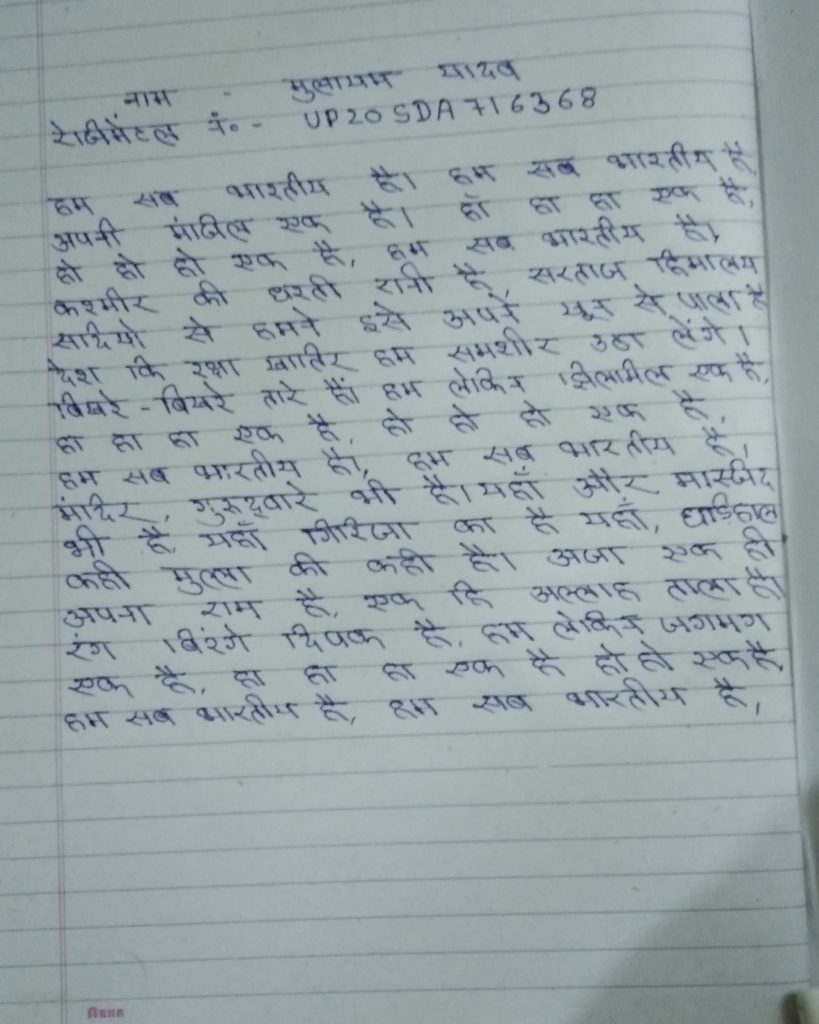 नाम - मुलायम यादव
रेजीमेंटल नं०- UP20SDA716368
हम सब भारतीय है। हम सब भारतीय है,
अपनी मंजिल एक है। हाँ हा हा एक है,
हो हो हो एक है, हम सब भारतीय है।,
कश्मीर की धरती रानी है, सरताज हिमालय
सदियो से हमने इसे अपने खून से पाला है
देश कि रक्षा खातिर हम समशीर उठा लेंगे।
बिखरे - बिखरे तारे है। हम लेकिन झिलमिल एक है,
हा हा हा एक है, हो हो हो एक है,
हम सब भारतीय है।, हम सब भारतीय है,
मंदिर, गुरुदवारे भी है। यहाँ और मस्जिद
भी है, यहाँ गिरिजा का है यहाँ,
कही मुल्ला की कही है। अजा एक ही
अपना राम है, एक हि अल्लाह ताला है।
रंग बिरंगे दिपक है, हम लेकिन जगमग
एक है, हा हा हा एक है हो हो एक है,
हम सब भारतीय है, हम सब भारतीय है,